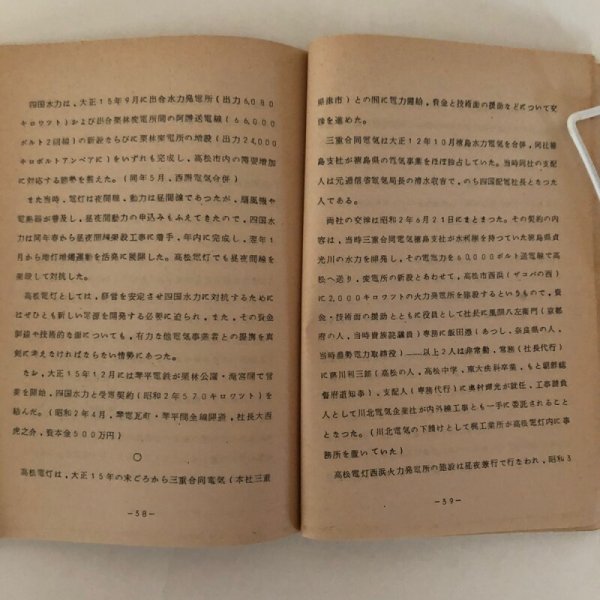 四国水力は,大正15年9月に出合水力発電所(出力6,080
キロワット)および出合栗林変電所間の阿讃送電線(66,000
ボルト2回線)の新設ならびに栗林変電所の増設(出力24,000
キロボルトアンペア)をいずれも完成し,高松市内の需要増加
に対応する態勢を整えた。(同年5月,西讃電気合併)
また当時,電灯は夜間線,動力は昼間線であつたが,扇風機や
電熱器が普及し,昼夜間動力の申込みもふえてきたので,四国水
力は同年春から昼夜間線架設工事に着手,年内に完成し,翌年1
月から増灯増燭運動を活発に展開した。高松電灯でも昼夜間線を
架設して対抗した。
高松電灯としては,経営を安定させ四国水力に対抗するために
はぜひとも新しい電源を開発する必要に迫られ,また,その資金
調達や技術的な面についても,有力な他電気事業者との提携を真
剣に考えなければならない情勢にあつた。
なお,大正15年12月には琴平電鉄が栗林公園・滝宮間で営
業を開始,四国水力と受電契約(昭和2年570キロワット)を
結んだ。(昭和2年4月,琴電瓦町・琴平間全線開通,社長大西
虎之介,資本金500万円)
○
高松電灯は,大正15年の末ごろから三重合同電気(本社三重
-38-
県津市)との間に電力開発,資金と技術面の援助などについて交
渉を進めた。
三重合同電気は大正12年10月徳島水力電気を合併,同社徳
島支社が徳島県の電気事業をほぼ独占していた。当時同社の支配
人は元逓信省電気局長の清水収吉で,のち四国配電社長となつた
人である。
両社の交渉は昭和2年6月21日にまとまつた。その契約の内
容は,当時三重合同電気徳島支社が水利権を持つていた徳島県貞
光川の水力を開発し,その電気力を60,000ボルト送電線で高
松へ送り,変電所の新設とあわせて,高松市西浜(ザコバの西)
に2,000キロワットの火力発電所を建設するというもので,資
金・技術面の援助とともに役員として社長に風間八左衛門(京都
府の人,当時貴族院議員)専務に飯田憑(あつし,奈良県の人,
当時島勢電力取締役)――以上2人は非常勤,常務(社長代行)
に藤川利三郎(高松の人,高松中学,東大法科卒業,もと朝鮮総
督府道知事),支配人(専務代行)に奥村輝光が就任,工事請負
人として川北電気企業社が内外線工事とも一手に委託されること
となつた。(川北電気の下請けとして梶工業所が高松電灯内に事
務所を置いていた)
高松電灯西浜火力発電所の建設は昼夜兼行で行なわれ,昭和3
-39-